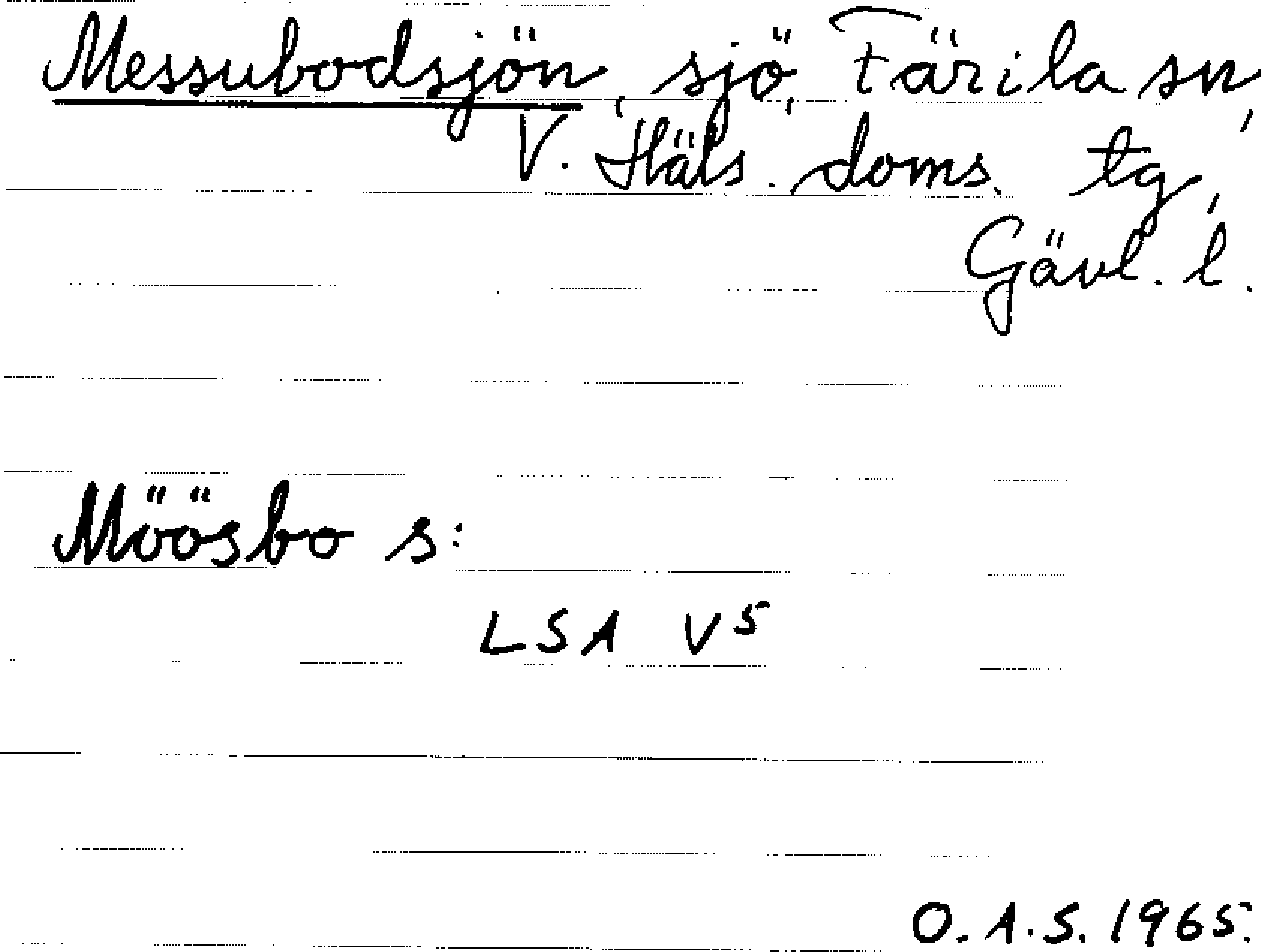 Messubodsjön, sjö, Färila sn,
V. Häls. doms. tg,
Gävl. l.
Möösbo s:
LSA V5
O.A.S. 1965.